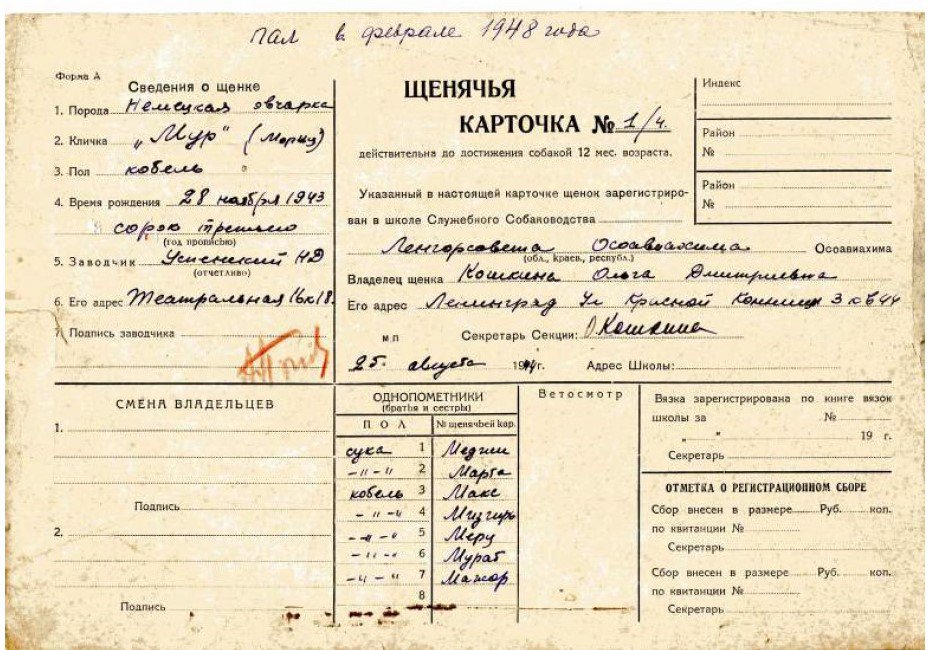 пал в феврале 1948 года
Форма А
Сведения о щенке
1. Порода Немецкая овчарка
2. Кличка „Мур" (Мориц)
3. Пол кобель
4. Время рождения 28 ноября 1943
сорок третьего
(год прописью)
5. Заводчик Успенский НД
(отчетливо)
6. Его адрес Театральная 16к18.
7. Подпись заводчика
ЩЕНЯЧЬЯ
КАРТОЧКА № 1/4.
действительна до достижения собакой 12 мес. возраста.
Указанный в настоящей карточке щенок зарегистриро-
ван в школе Служебного Собаководства
Ленгорсовета Осоавиахима Осоавиахима
(обл., краев., республ.)
Владелец щенка Кошкина Ольга Дмитриевна
Его адрес Ленинград Ул Красной Конницы 3 кв 44
м п Секретарь Секции: О Кошкина
25. августа 1944г. Адрес Школы:
Индекс
Район
№
Район
№
СМЕНА ВЛАДЕЛЬЦЕВ
1.
Подпись
2.
Подпись
ОДНОПОМЕТНИКИ
(братья и сестры)
ПОЛ № щенячьей кар.
сука 1 Меджи
-"-" 2 Марта
кобель 3 Макс
-"-" 4 Мизгирь
-"-" 5
-"-" 6 Мурат
-"-" 7 Мажор
8
Ветосмотр
Вязка зарегистрирована по книге вязок
школы за №
„ " 19 г.
Секретарь
ОТМЕТКА О РЕГИСТРАЦИОННОМ СБОРЕ
Сбор внесен в размере Руб. коп.
по квитанции №
Секретарь
Сбор внесен в размере Руб. коп.
по квитанции №
Секретарь